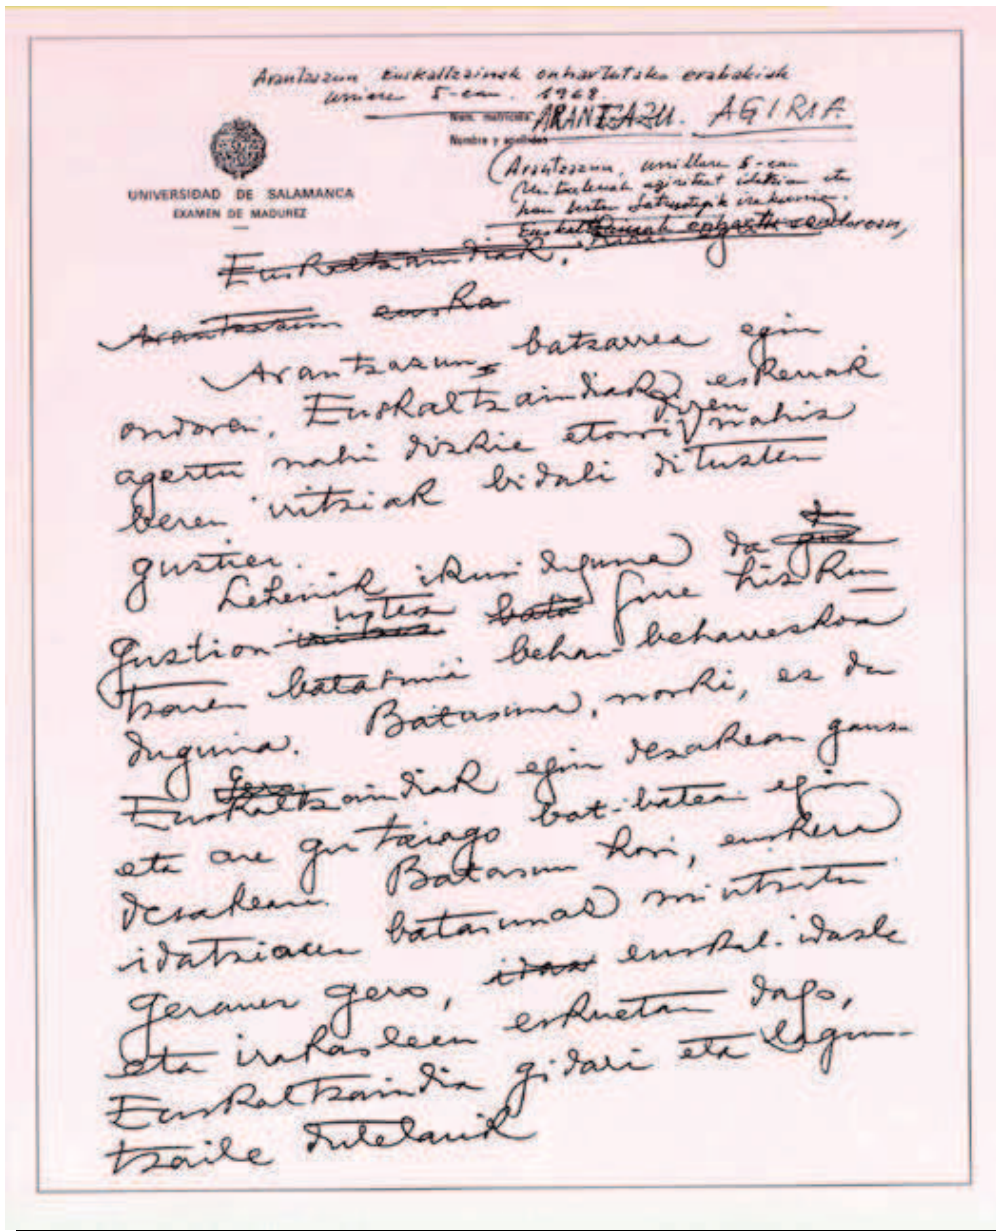 Arantzazun Euskaltzainek onhartutako erabakiak
urriaren 5-ean. 1968.
Núm. matrícula ARANTZAZU. AGIRIA
Nombre y apellidos
(Arantzazun, urrillare 5-ean
agiritxut idatzian eta
han berta irakurria.
UNIVERSIDAD DE SALAMANCA
EXAMEN DE MADUREZ
Euskaltzainak onhartu ondoren,
Euskaltzaindiak,
Arantzazun euska
Arantzazun, batzarrea egin
ondoren, Euskaltzaindiak eskerrak
agertu nahi dizkie etorri diren nahiz
beren iritziak bidali dituzten
guztier.
Lehenik ikusi duguna da
guztion ustez bata gure hizkun
tzaren batasuna behar-beharrezkoa
duguna. Batasuna, noski, ez da
Gero,
Euskaltzaindiak egin dezakean gauza
eta are gutxiago bat-batean egin
dezakeana. Batasun hori, euskera
idatziaren batasunaz mintzatu
geranez gero, idaz euskal-idazle
eta irakasleen eskuetan dago,
Euskaltzaindia gidari eta lagun-
tzaile dutelarik